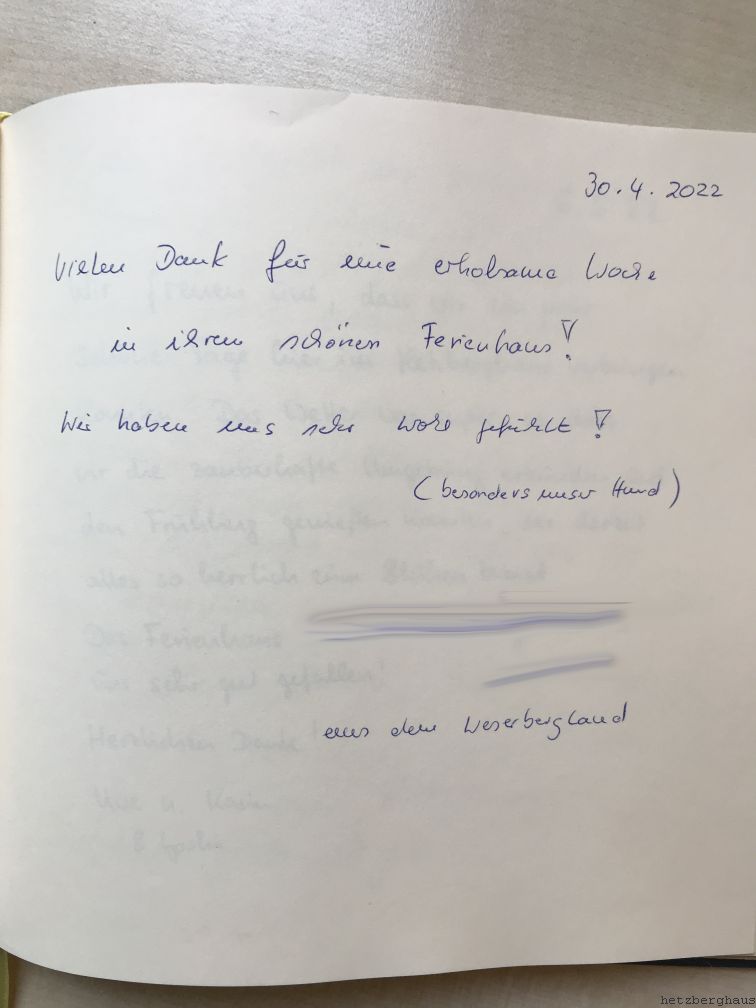 30.4.2022
Vielen Dank für eine erholsame Woche
in ihrem schönen Ferienhaus!
Wir haben uns sehr wohl gefühlt!
(besonders unser Hund)
aus dem Weserbergland
hetzberghaus